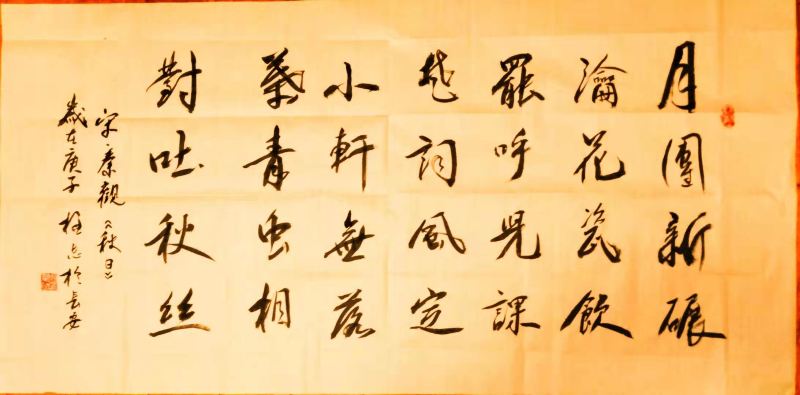 月團新碾
瀹花瓷飲
罷呼兒課
楚詞風定
小軒無落
葉青虫相
對吐秋丝
宋秦觀秋日
歲在庚子 於長安